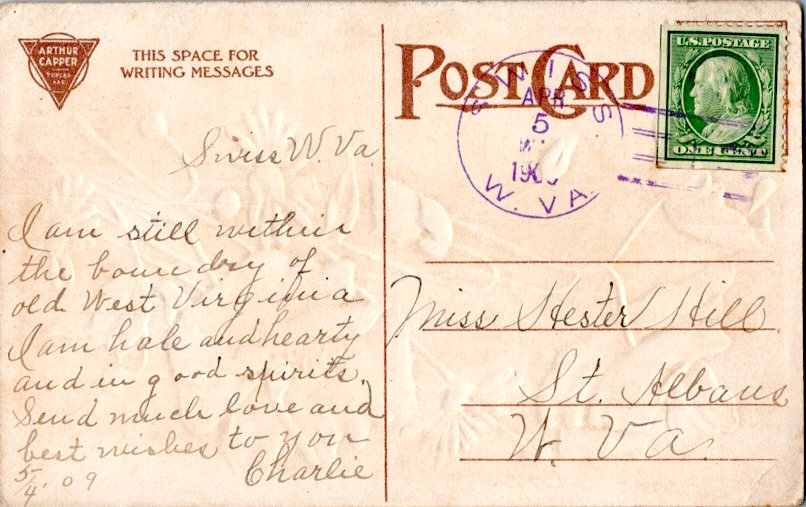 ARTHUR
CAPPER
TOPEKA
KAN.
THIS SPACE FOR
WRITING MESSAGES
POST CARD
SWISS
APR
5
W. VA.
U.S. POSTAGE
ONE CENT
Swiss W. Va.
I am still within
the boundry of
old West Virginia
I am hale and hearty
and in good spirits.
Send much love and
best wishes to you
Charlie
5/4. 09
Miss Hester Hill.
St. Albans
W. Va.